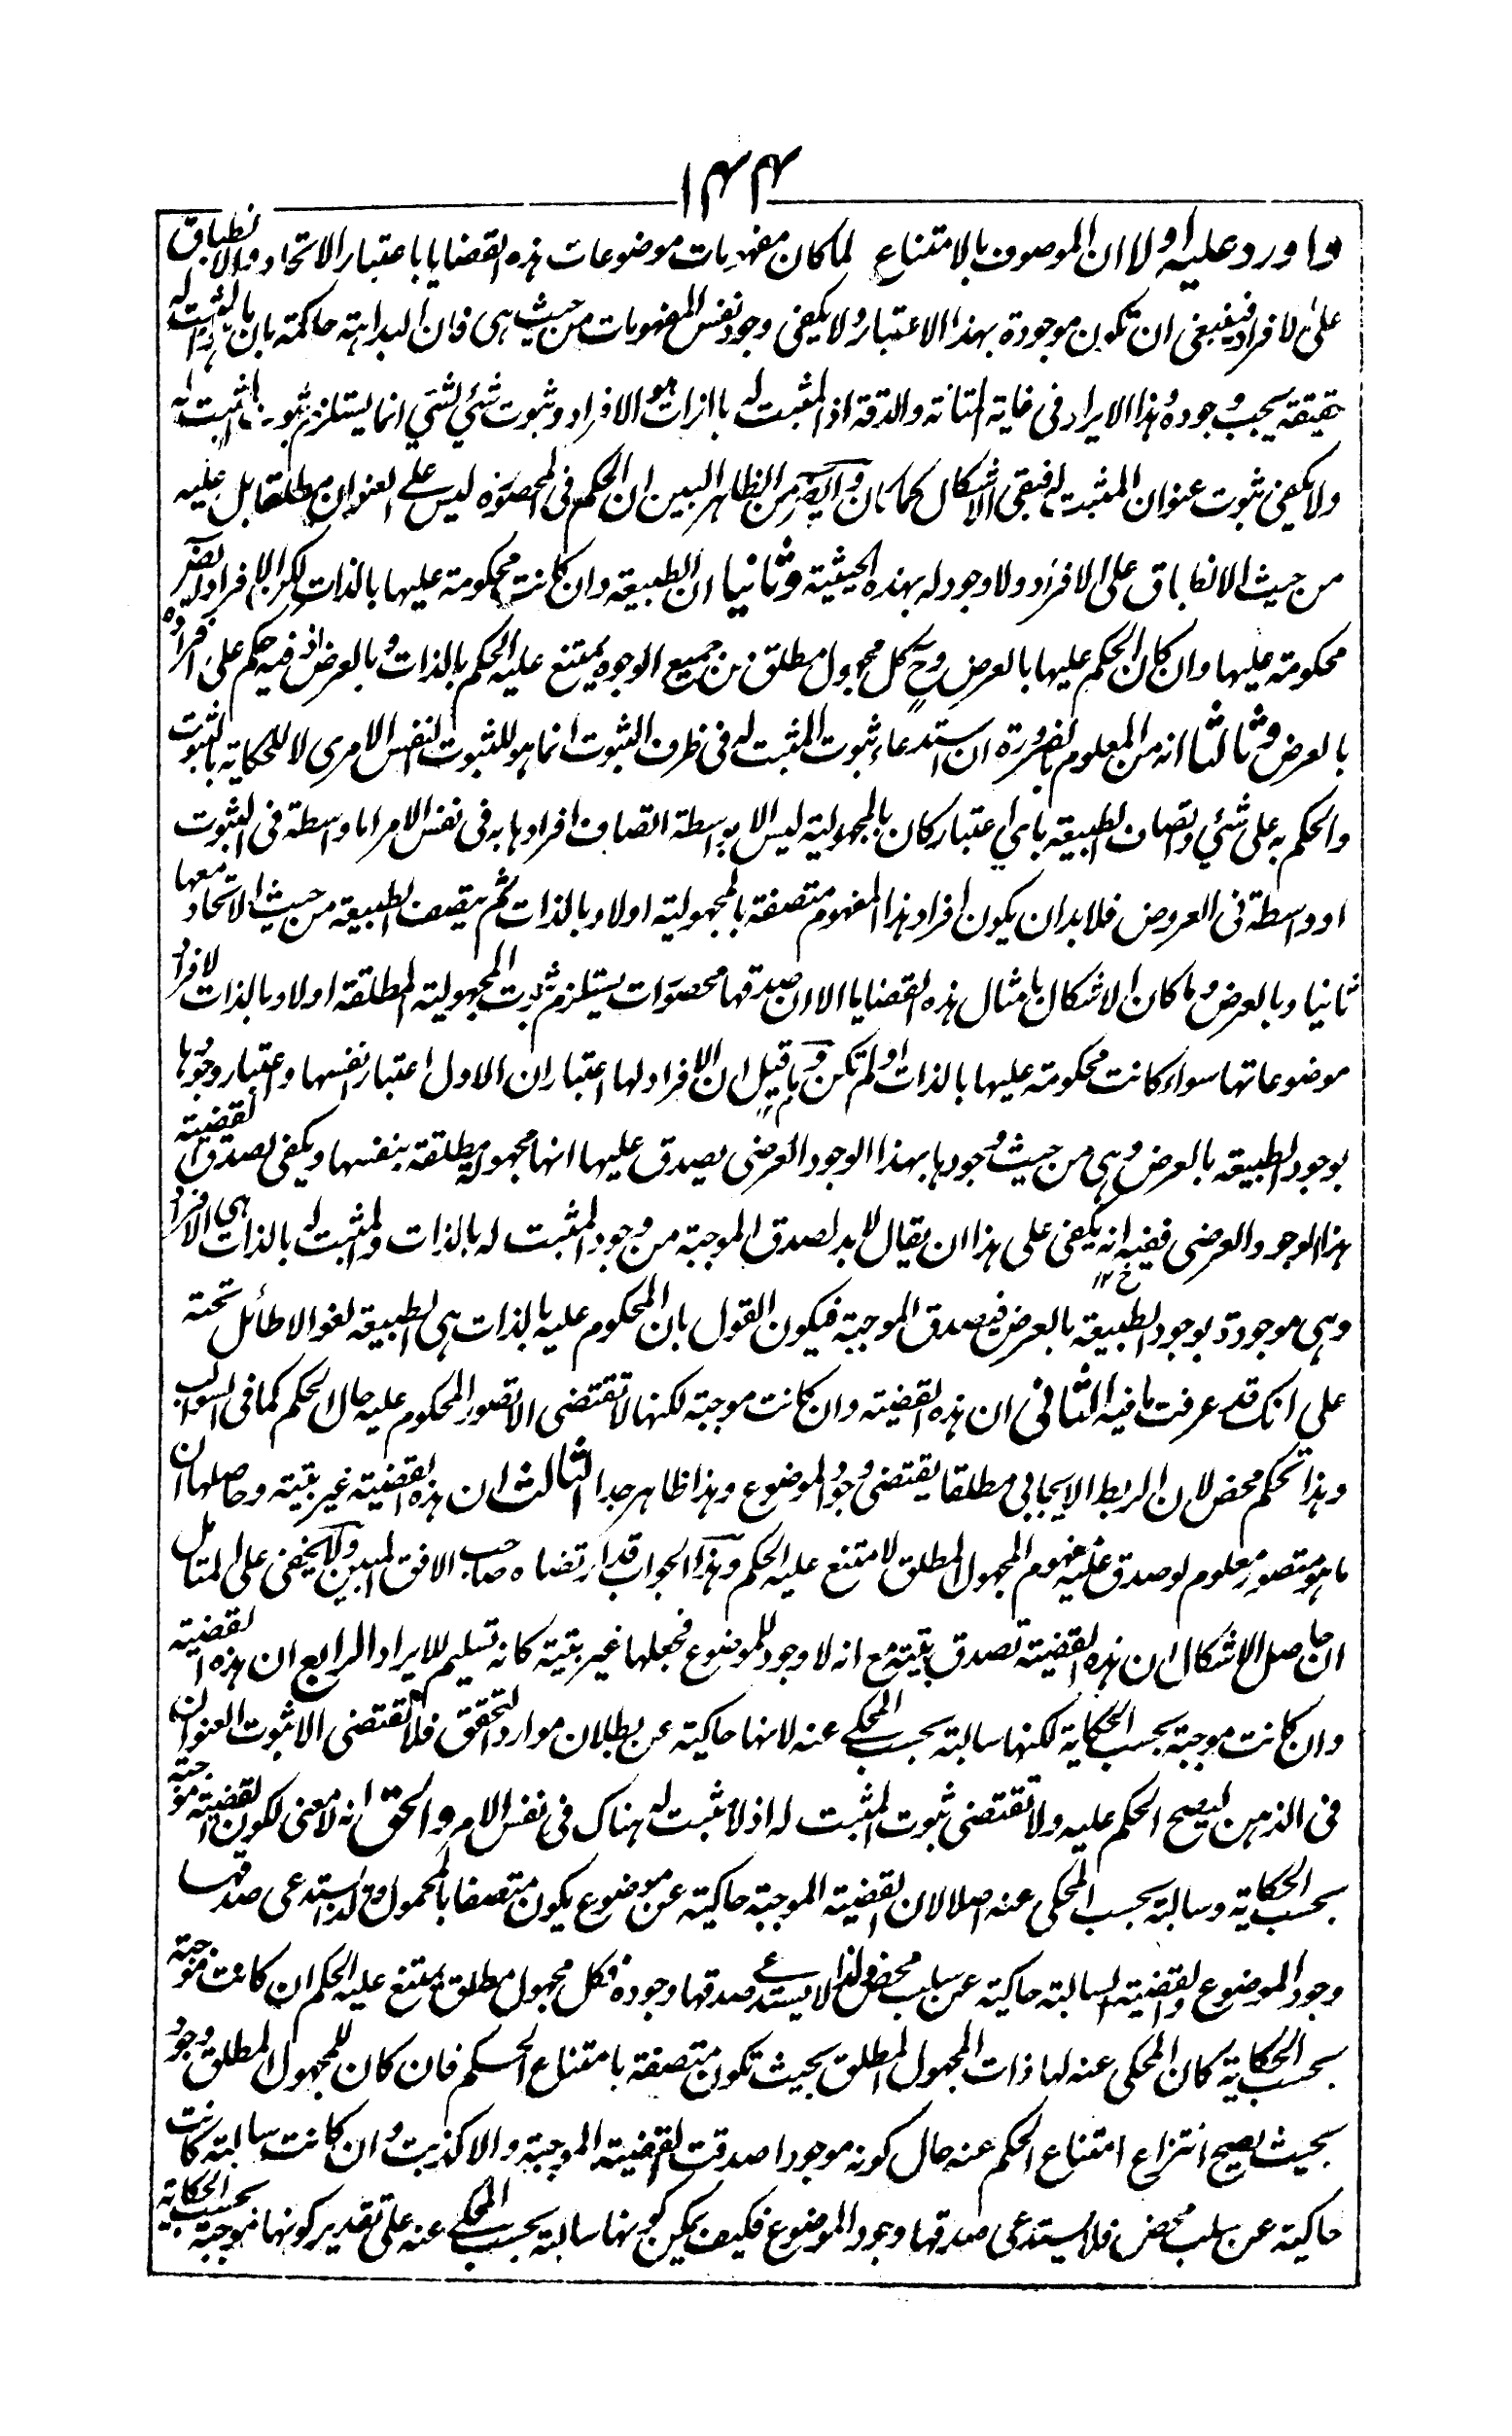 ١٤٤
واورد عليه اولا ان الموصوف بالامتناع لما كان مفهومات موضوعات هذه القضايا باعتبار الاتحاد والانطباق
على الافراد فينبغي ان تكون موجودة بهذا الاعتبار ولا يكفي وجود نفس المفهومات من حيث هي فان البداهة حاكمة بان المثبت له بالذات
حقيقة يجب وجوده وهذا الايراد في غاية المتانة والدقة اذ المثبت له بالذات هو الافراد وثبوت شئ لشئ انما يستلزم ثبوت المثبت له
ولا يكفي ثبوت عنوان المثبت له فبقي الاشكال كما كان وايضا من الظاهر البين ان الحكم في المحصورة ليس على العنوان مطلقا بل عليه
من حيث الانطباق على الافراد ولا وجود له بهذه الحيثية وثانيا ان الطبيعة وان كانت محكومة عليها بالذات لكن الافراد ايضا
محكومة عليها وان كان الحكم عليها بالعرض وح كل مجهول مطلق من جميع الوجوه يمتنع عليه الحكم بالذات وبالعرض اذ فيه حكم على افراده
بالعرض وثالثا انه من المعلوم بالضرورة ان استدعاء ثبوت المثبت له في ظرف الثبوت انما هو للثبوت النفس الامري لا للحكاية بالثبوت
والحكم به على شئ واتصاف الطبيعة باي اعتبار كان بالمجهولية ليس الا بواسطة اتصاف افرادها به في نفس الامر اما واسطة في الثبوت
او واسطة في العروض فلا بد ان يكون افراد هذا المفهوم متصفة بالمجهولية اولا وبالذات ثم يتصف الطبيعة من حيث الاتحاد معها
ثانيا وبالعرض وما كان الاشكال بامثال هذه القضايا الا ان صدقها محصورات يستلزم ثبوت المجهولية المطلقة اولا وبالذات لافراد
موضوعاتها سواء كانت محكومة عليها بالذات او لم تكن وما قيل ان الافراد لها اعتباران الاول اعتبار انفسها واعتبار وجودها
بوجود الطبيعة بالعرض وهي من حيث وجودها بهذا الوجود العرضي يصدق عليها انها مجهولة مطلقة بنفسها ويكفي لصدق القضية
هذا الوجود العرضي ففيه انه يكفي على هذا ان يقال لا بد لصدق الموجبة من وجود المثبت له بالذات والمثبت له بالذات هي الافراد
وهي موجودة بوجود الطبيعة بالعرض فيصدق الموجبة فيكون القول بان المحكوم عليه بالذات هي الطبيعة لغوا لا طائل تحته
على انك قد عرفت ما فيه الثاني ان هذه القضية وان كانت موجبة لكنها لا تقتضي الا تصور المحكوم عليه حال الحكم كما في السوالب
وهذا تحكم محض لان الربط الايجابي مطلقا يقتضي وجود الموضوع وهذا ظاهر جدا الثالث ان هذه القضية غير بتية وحاصلها ان
ما هو متصور معلوم لو صدق عليه مفهوم المجهول المطلق لامتنع عليه الحكم وهذا الجواب قد ارتضاه صاحب الافق المبين ولا يخفى على المتامل
ان حاصل الاشكال ان هذه القضية تصدق بتية مع انه لا وجود للموضوع فجعلها غير بتية كانه تسليم للايراد الرابع ان هذه القضية
وان كانت موجبة بحسب الحكاية لكنها سالبة بحسب المحكي عنه لانها حاكية عن بطلان موارد التحقق فلا تقتضي الا ثبوت العنوان
في الذهن ليصح الحكم عليه ولا تقتضي ثبوت المثبت له اذ لا مثبت له هناك في نفس الامر والحق انه لا معنى لكون القضية موجبة
بحسب الحكاية وسالبة بحسب المحكي عنه اصلا لان القضية الموجبة حاكية عن موضوع يكون متصفا بالمحمول ولذا يستدعي صدقها
وجود الموضوع والقضية السالبة حاكية عن سلب محض ولذا لا يستدعي صدقها وجوده فكل مجهول مطلق يمتنع عليه الحكم ان كانت موجبة
بحسب الحكاية كان المحكي عنه لها ذات المجهول المطلق بحيث تكون متصفة بامتناع الحكم فان كان للمجهول المطلق وجود
بحيث يصح انتزاع امتناع الحكم عنه حال كونه موجودا صدقت القضية الموجبة والا كذبت وان كانت سالبة كانت
حاكية عن سلب محض فلا يستدعي صدقها وجود الموضوع فكيف يمكن كونها سالبة بحسب المحكي عنه على تقدير كونها موجبة بحسب الحكاية